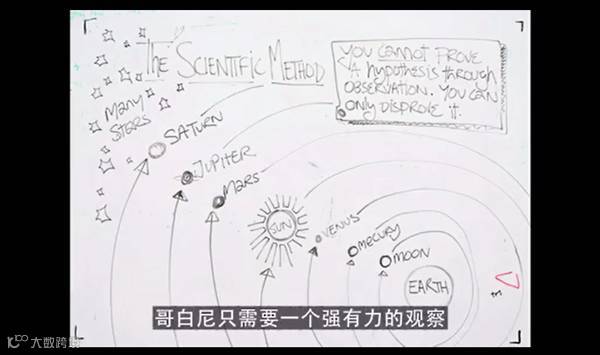 The SCIENTIFIC METHOD
YOU CANNOT PROVE
A hypothesis through
OBSERVATION. YOU CAN
only DISPROVE it.
MANY
STARS
SATURN
JUPITER
MARS
SUN
VENUS
MECURY
MOON
EARTH
哥白尼只需要一个强有力的观察
大数跨境